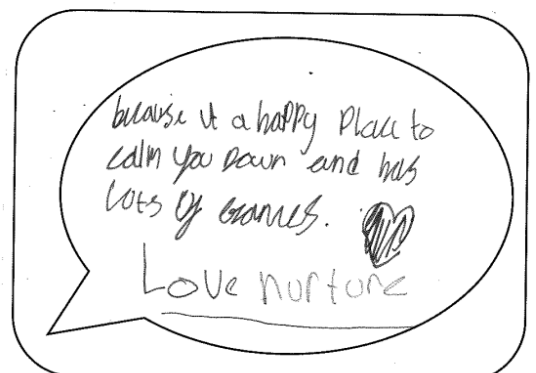 because it a happy Place to
calm you Down and has
Lots of games.
Love nurture